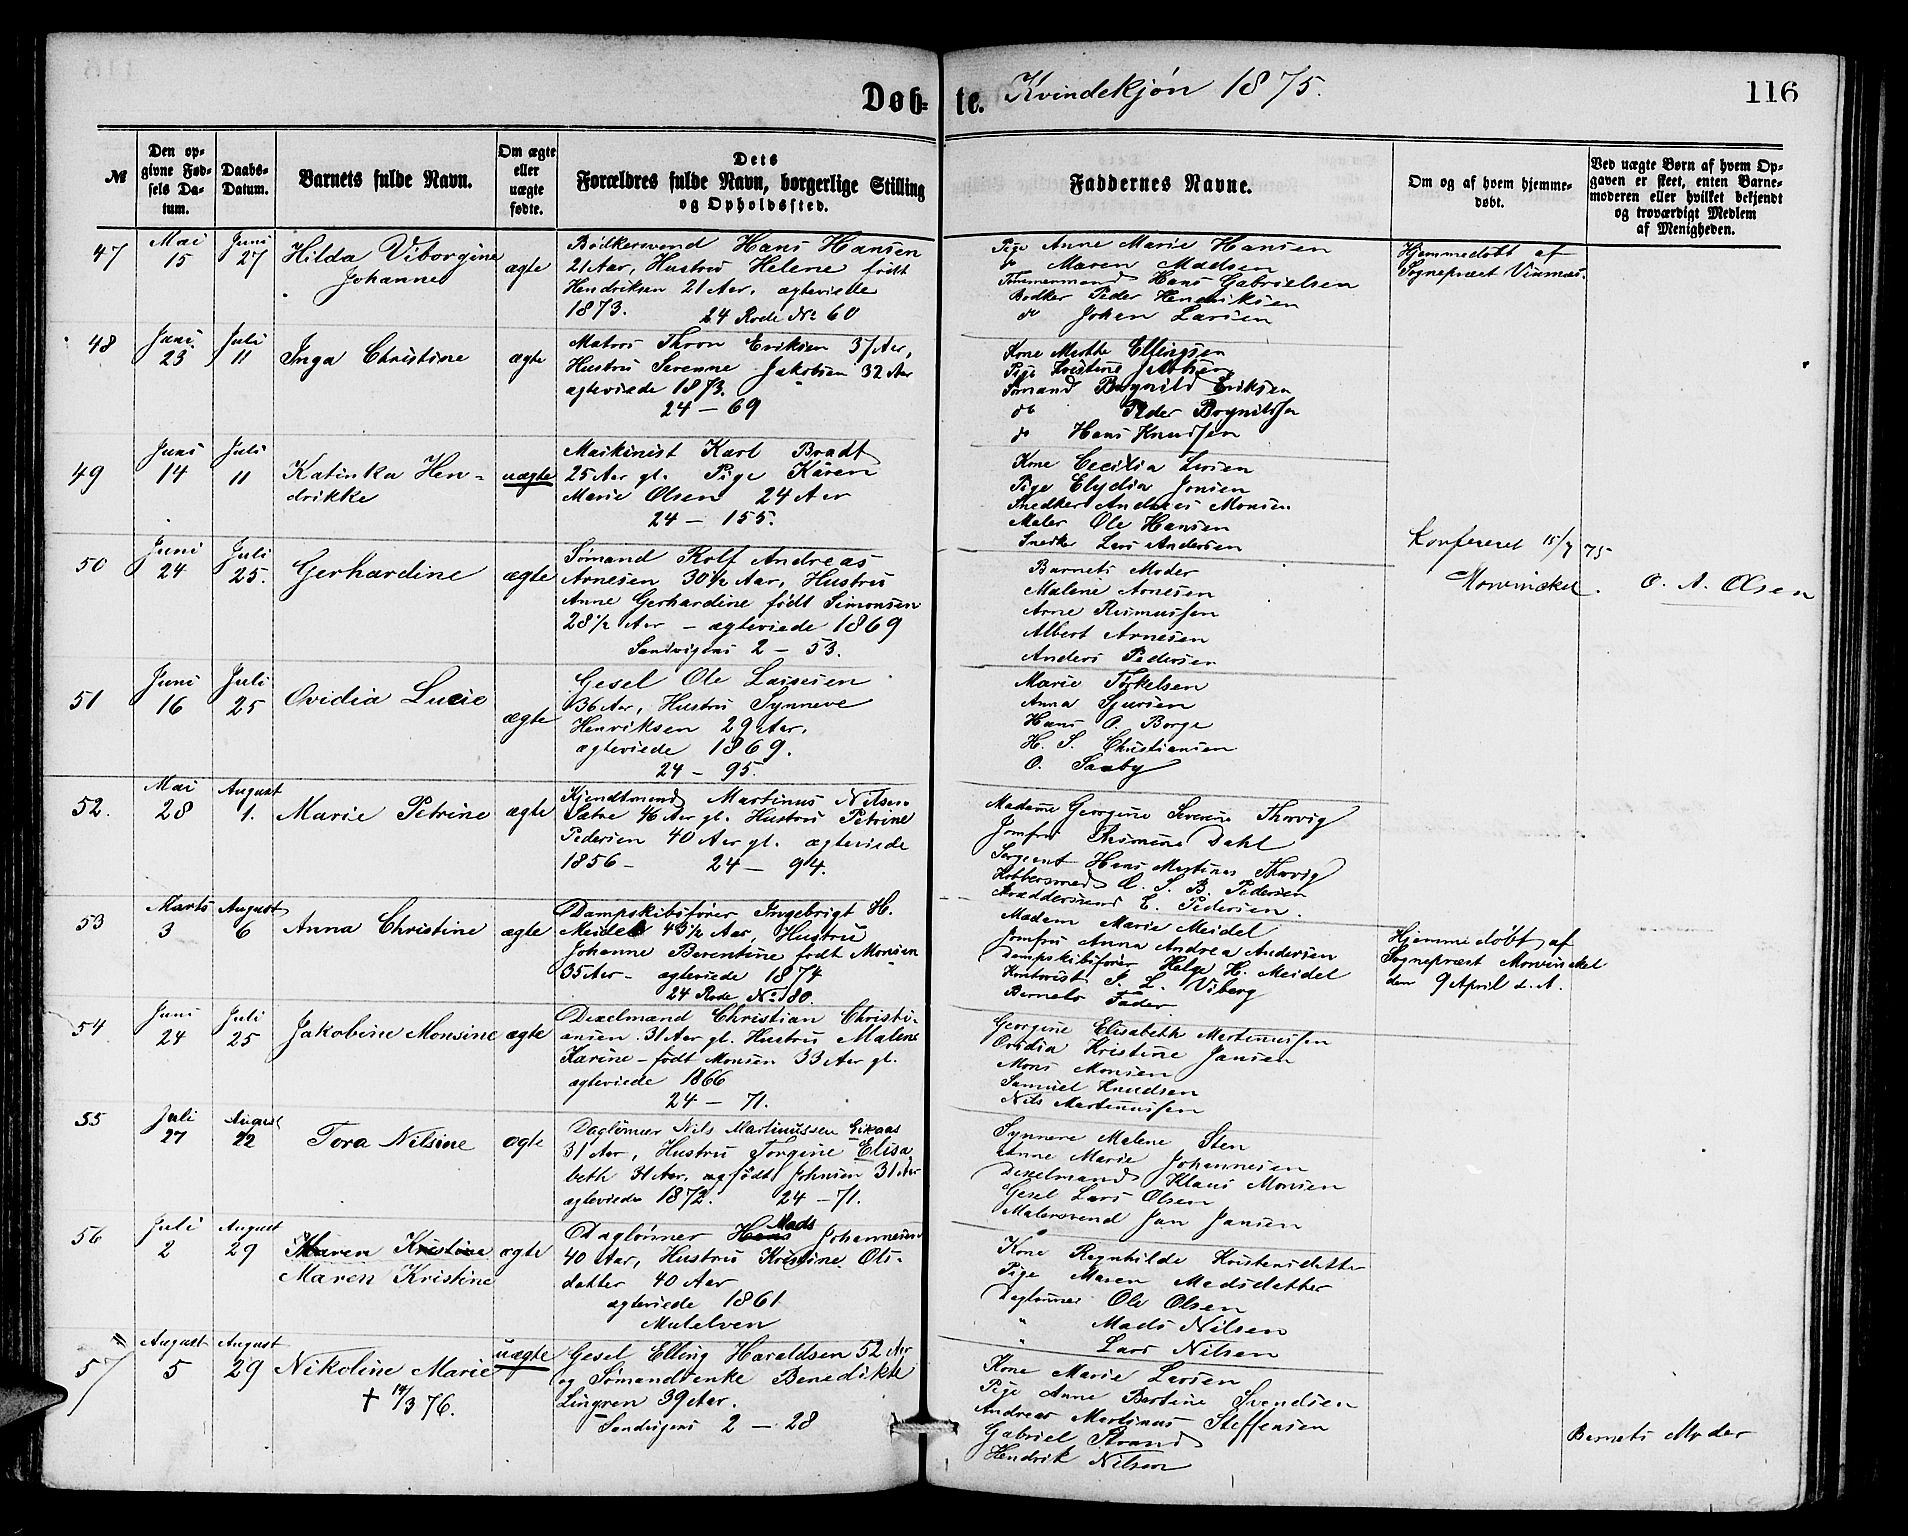 Døb- te. Kvindekjøn 1875. 116
№
Den op-
givne Fød-
sels Da-
tum.
Daabs-
Datum.
Barnets fulde Navn.
Om ægte
eller
uægte
fødte.
Dets
Forældres fulde Navn, borgerlige Stilling
og Opholdssted.
Faddernes Navne.
Om og af hvem hjemme-
døbt.
Ved uægte Børn af hvem Op-
gaven er skeet, enten Barne-
moderen eller hvilket bekjendt
og troværdigt Medlem
af Menigheden.
47
Mai
15
Juni
27
Hilda Viborgine
Johanne
ægte
Bødkersvend Hans Hansen
21 Aar, Hustru Helene født
Hendriksen 21 Aar, ægteviede
1873. 24 Rode No 60
Pige Anne Marie Hansen
do Maren Madsen
Tømmermand Hans Gabrielsen
Bødker Peder Henriksen
do Johan Larsen
Hjemmedøbt af
Sognepræst
48
Juni
23
Juli
11
Inga Christine
ægte
Matros Thron Eriksen 37 Aar,
Hustru Serenne Jakobsen 32 Aar
ægteviede 1873.
24 - 69
Kone Marthe Ellingsen
Pige Kristine
Sømand Bagnild Eriksen
do Peder Bognilssen
do Hans Knudssen
49
Juni
14
Juli
11
Katinka Hen-
drikke
uægte
Maskinist Karl Bradt
25 Aar gl. Pige Karen
Marie Olsen 24 Aar
24 - 155.
Kone Cecilia Larsen
Pige Elydia Jonsen
Snedker Andreas Monsen
Maler Ole Hansen
Snedker Lars Andersen
50
Juni
24
Juli
25.
Gerhardine
ægte
Sømand Rolf Andreas
Arnesen 30½ Aar, Hustru
Anne Gerhardine født Simonsen
28½ Aar - ægteviede 1869
Sandvigens 2 - 53.
Barnets Moder
Malene Arnesen
Arne Rasmussen
Albert Arnesen
Anders Pedersen
Konfereret 15/7 75
O. A. Olsen
51
Juni
16
Juli
25
Ovidia Lucie
ægte
Gesel Ole Larsen
36 Aar, Hustru Synneve
Henriksen 29 Aar,
ægteviede 1869.
24 - 95.
Marie Torkelsen
Anna Sjursen
Hans O. Borge
H. S. Christiansen
O. Saaby
52.
Mai
28
August
1.
Marie Petrine
ægte
Martinus Nilsen
Sætre 46 Aar gl. Hustru Petrine
Pedersen 40 Aar gl. ægteviede
1856 - 24 - 94.
Madame Georgine Severine Thorvig
Jomfru Rasmine Dahl
Sergeant Hans Martinus Thorvig
Kobbersmed C. S. B. Pedersen
Skræddersvend E. Pedersen.
53
Marts
3
August
6
Anna Christine
ægte
Dampskibsfører Ingebrigt H.
Meidel 43½ Aar, Hustru
Johanne Berentine født Monsen
35 Aar - ægteviede 1874
24 Rode No 180.
Madam Marie Meidel
Jomfru Anna Andrea Andersen
Dampskibsfører Helge H. Meidel
Kontorist I. L. Viberg
Barnets Fader
Hjemmedøbt af
Sognepræst Morvinckel
den 9 April d. A.
54
Juni
24
Juli
25
Jakobine Monsine
ægte
Dixelmand Christian Christi-
ansen 31 Aar gl. Hustru Malene
Karine - født Monsen 33 Aar gl.
ægteviede 1866
24 - 71.
Georgine Elisabeth Martinussen
Ovidia Kristine Jansen
Mons Monsen
Samuel Knudsen
Nils Martinussen
55
Juli
27
August
22
Tora Nilsine
ægte
Daglønner Nils Martinussen
31 Aar, Hustru Torgine Elisa
beth 31 Aar, født Johnsen 31 Aar
ægteviede 1872. 24 - 71.
Synnere Malene Sten
Anne Marie Johannesen
Dixelmand Klaus Monsen
Gesel Lars Olsen
Malersvend Jan Jansen
56
Juli
2
August
29
Maren Kristine
Maren Kristine
ægte
Daglønner Hans Mads Johannesen
40 Aar, Hustru Kristine Ols-
datter 40 Aar
ægteviede 1861
Mulelven
Kone Ragnhilde Kristensdatter
Pige Maren Madsdatter
Daglønner Ole Olsen
" Mads Nilsen
" Lars Nilsen
57
August
5
August
29
Nikoline Marie
† 14/3 76.
uægte
Gesel Elling Haraldsen 52 Aar
og Sømandsenke Benedikte
Lingren 39 Aar.
Sandvigens 2 - 28
Kone Marie Larsen
Pige Anne Bertine Svendsen
Andreas Martinus Steffensen
Gabriel Strand
Hendrik Nilsen
Barnets Moder